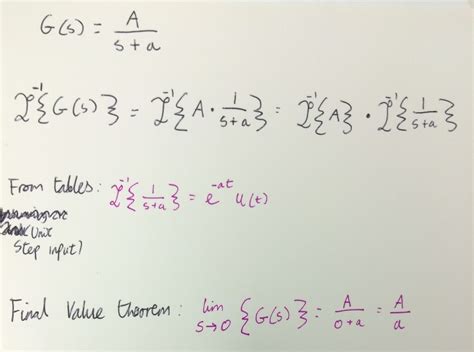 G(s) = A / (s + a)
ℒ⁻¹{G(s)} = ℒ⁻¹{A · 1/(s+a)} = ℒ⁻¹{A} · ℒ⁻¹{1/(s+a)}
From tables: ℒ⁻¹{1/(s+a)} = e^(-at) u(t)
(Unit
Step input)
Final Value theorem: lim s→0 {G(s)} = A/(0+a) = A/a